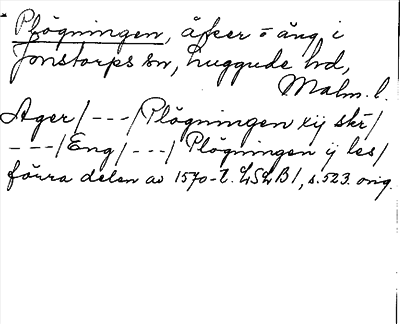 Plögningen, åker o äng i
Jonstorps sn, Luggude hd,
Malm. l.
Ager/---/Plögningen xij skr/
---/Eng/---/Plögningen ij les/
förra delen av 1570-t. LSLB1, s. 523. orig.